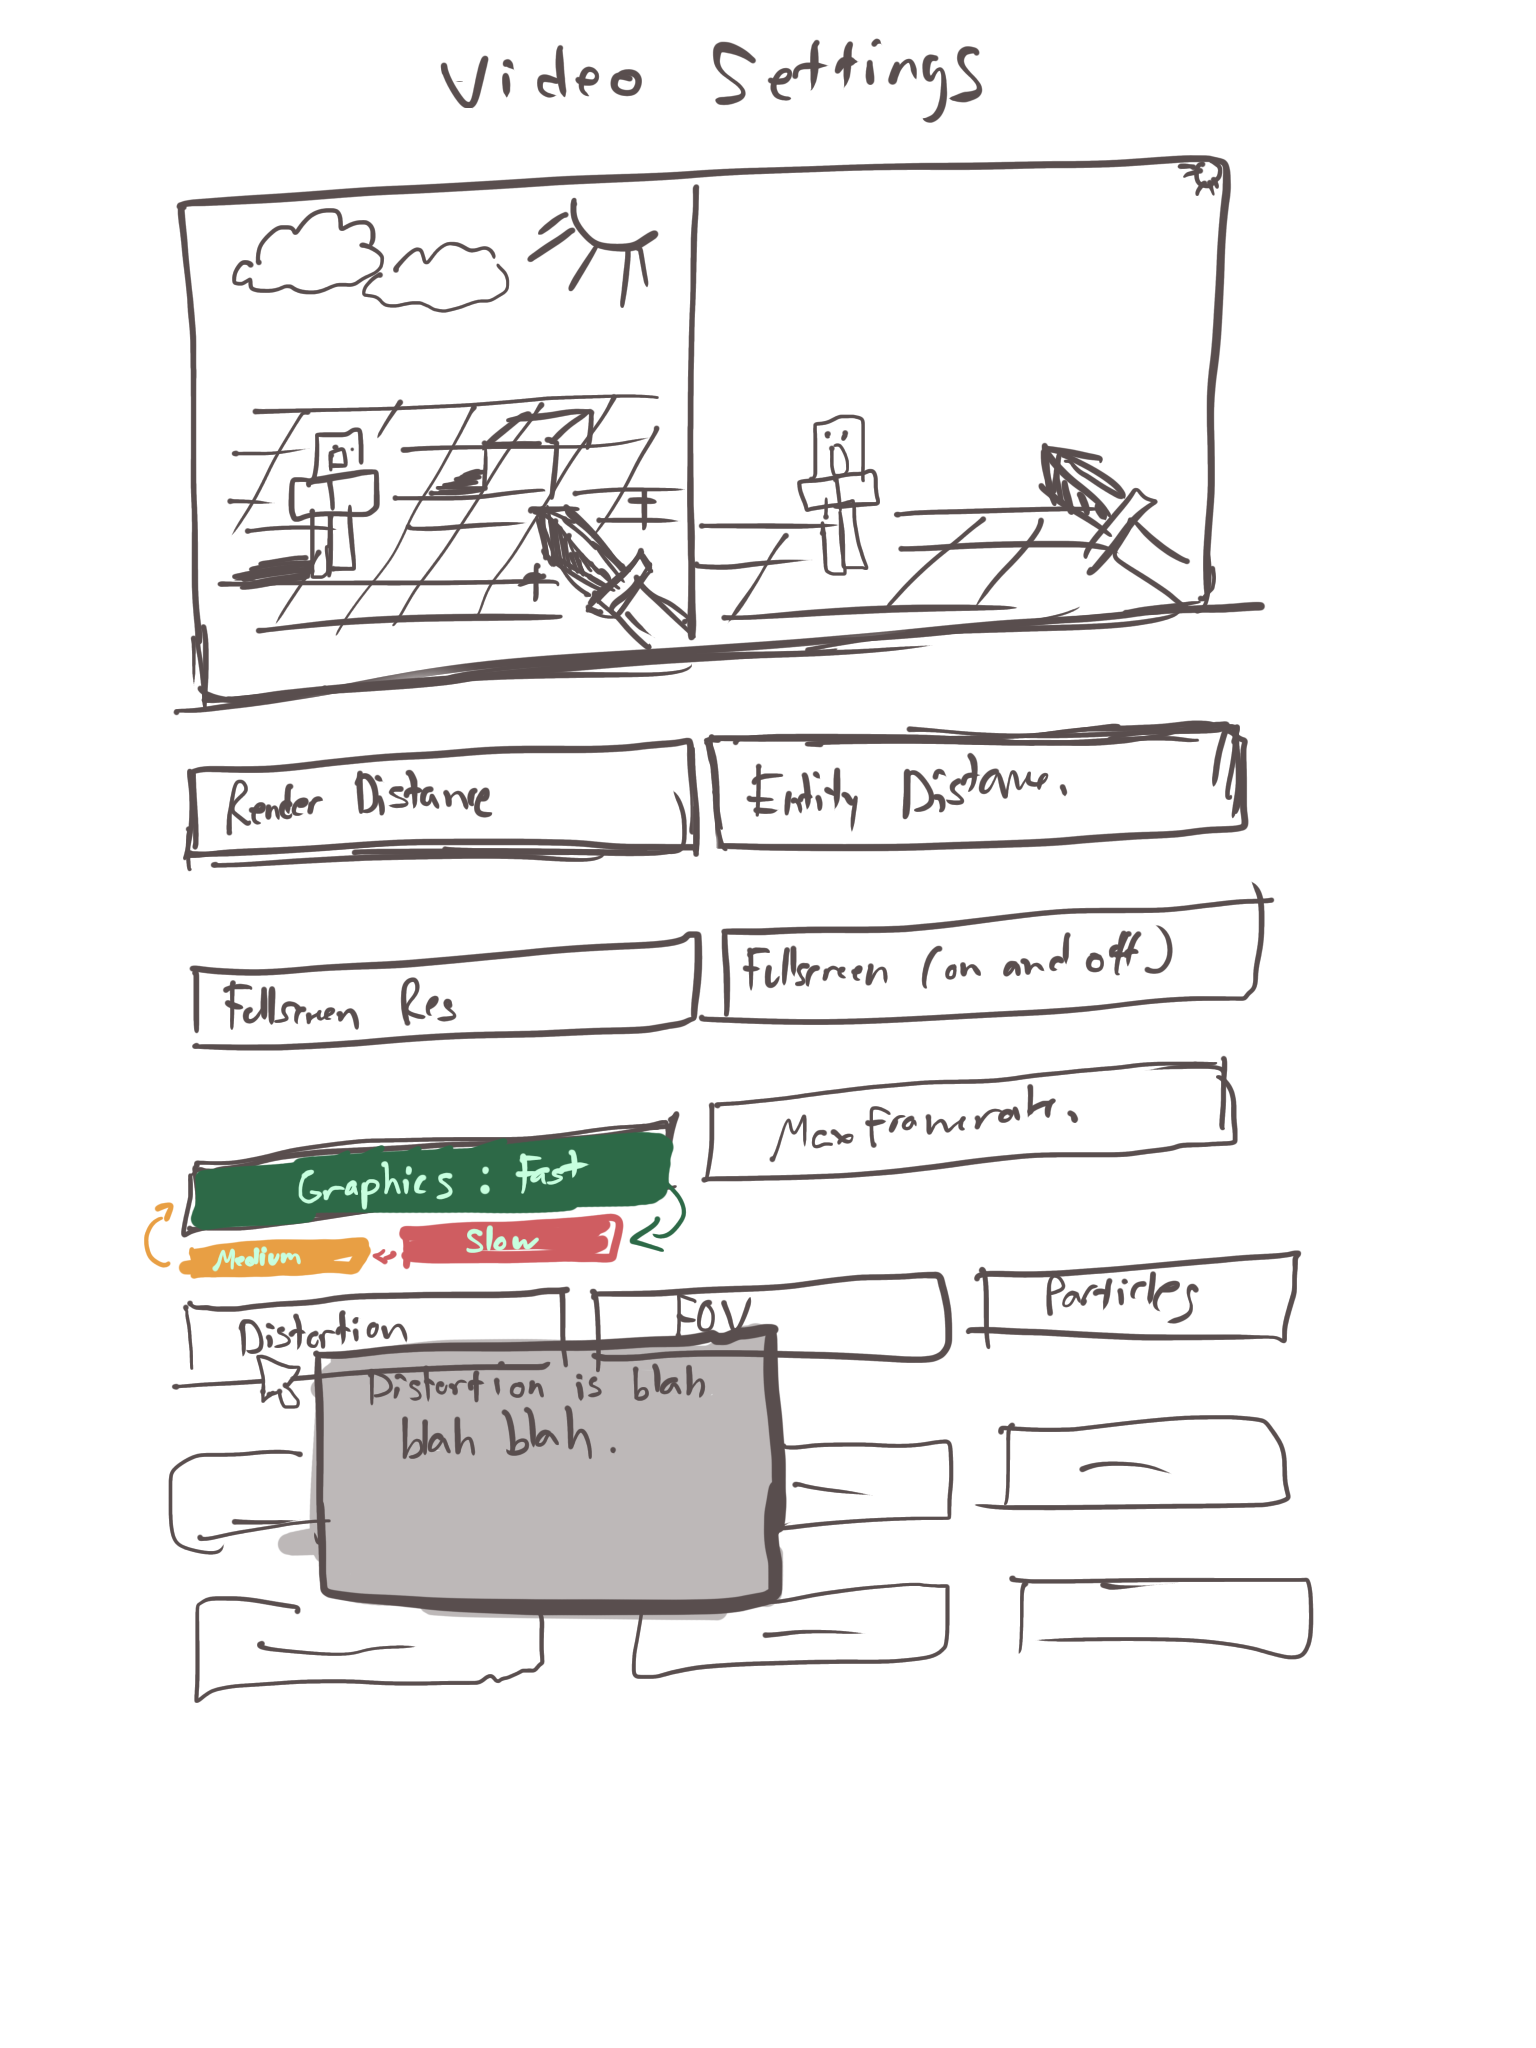 Video Settings
Render Distance
Entity Distance.
Fullscreen Res
Fullscreen (on and off)
Max Framerate.
Graphics: Fast
Slow
Medium
Distortion
FOV
Particles
Distortion is blah
blah blah.